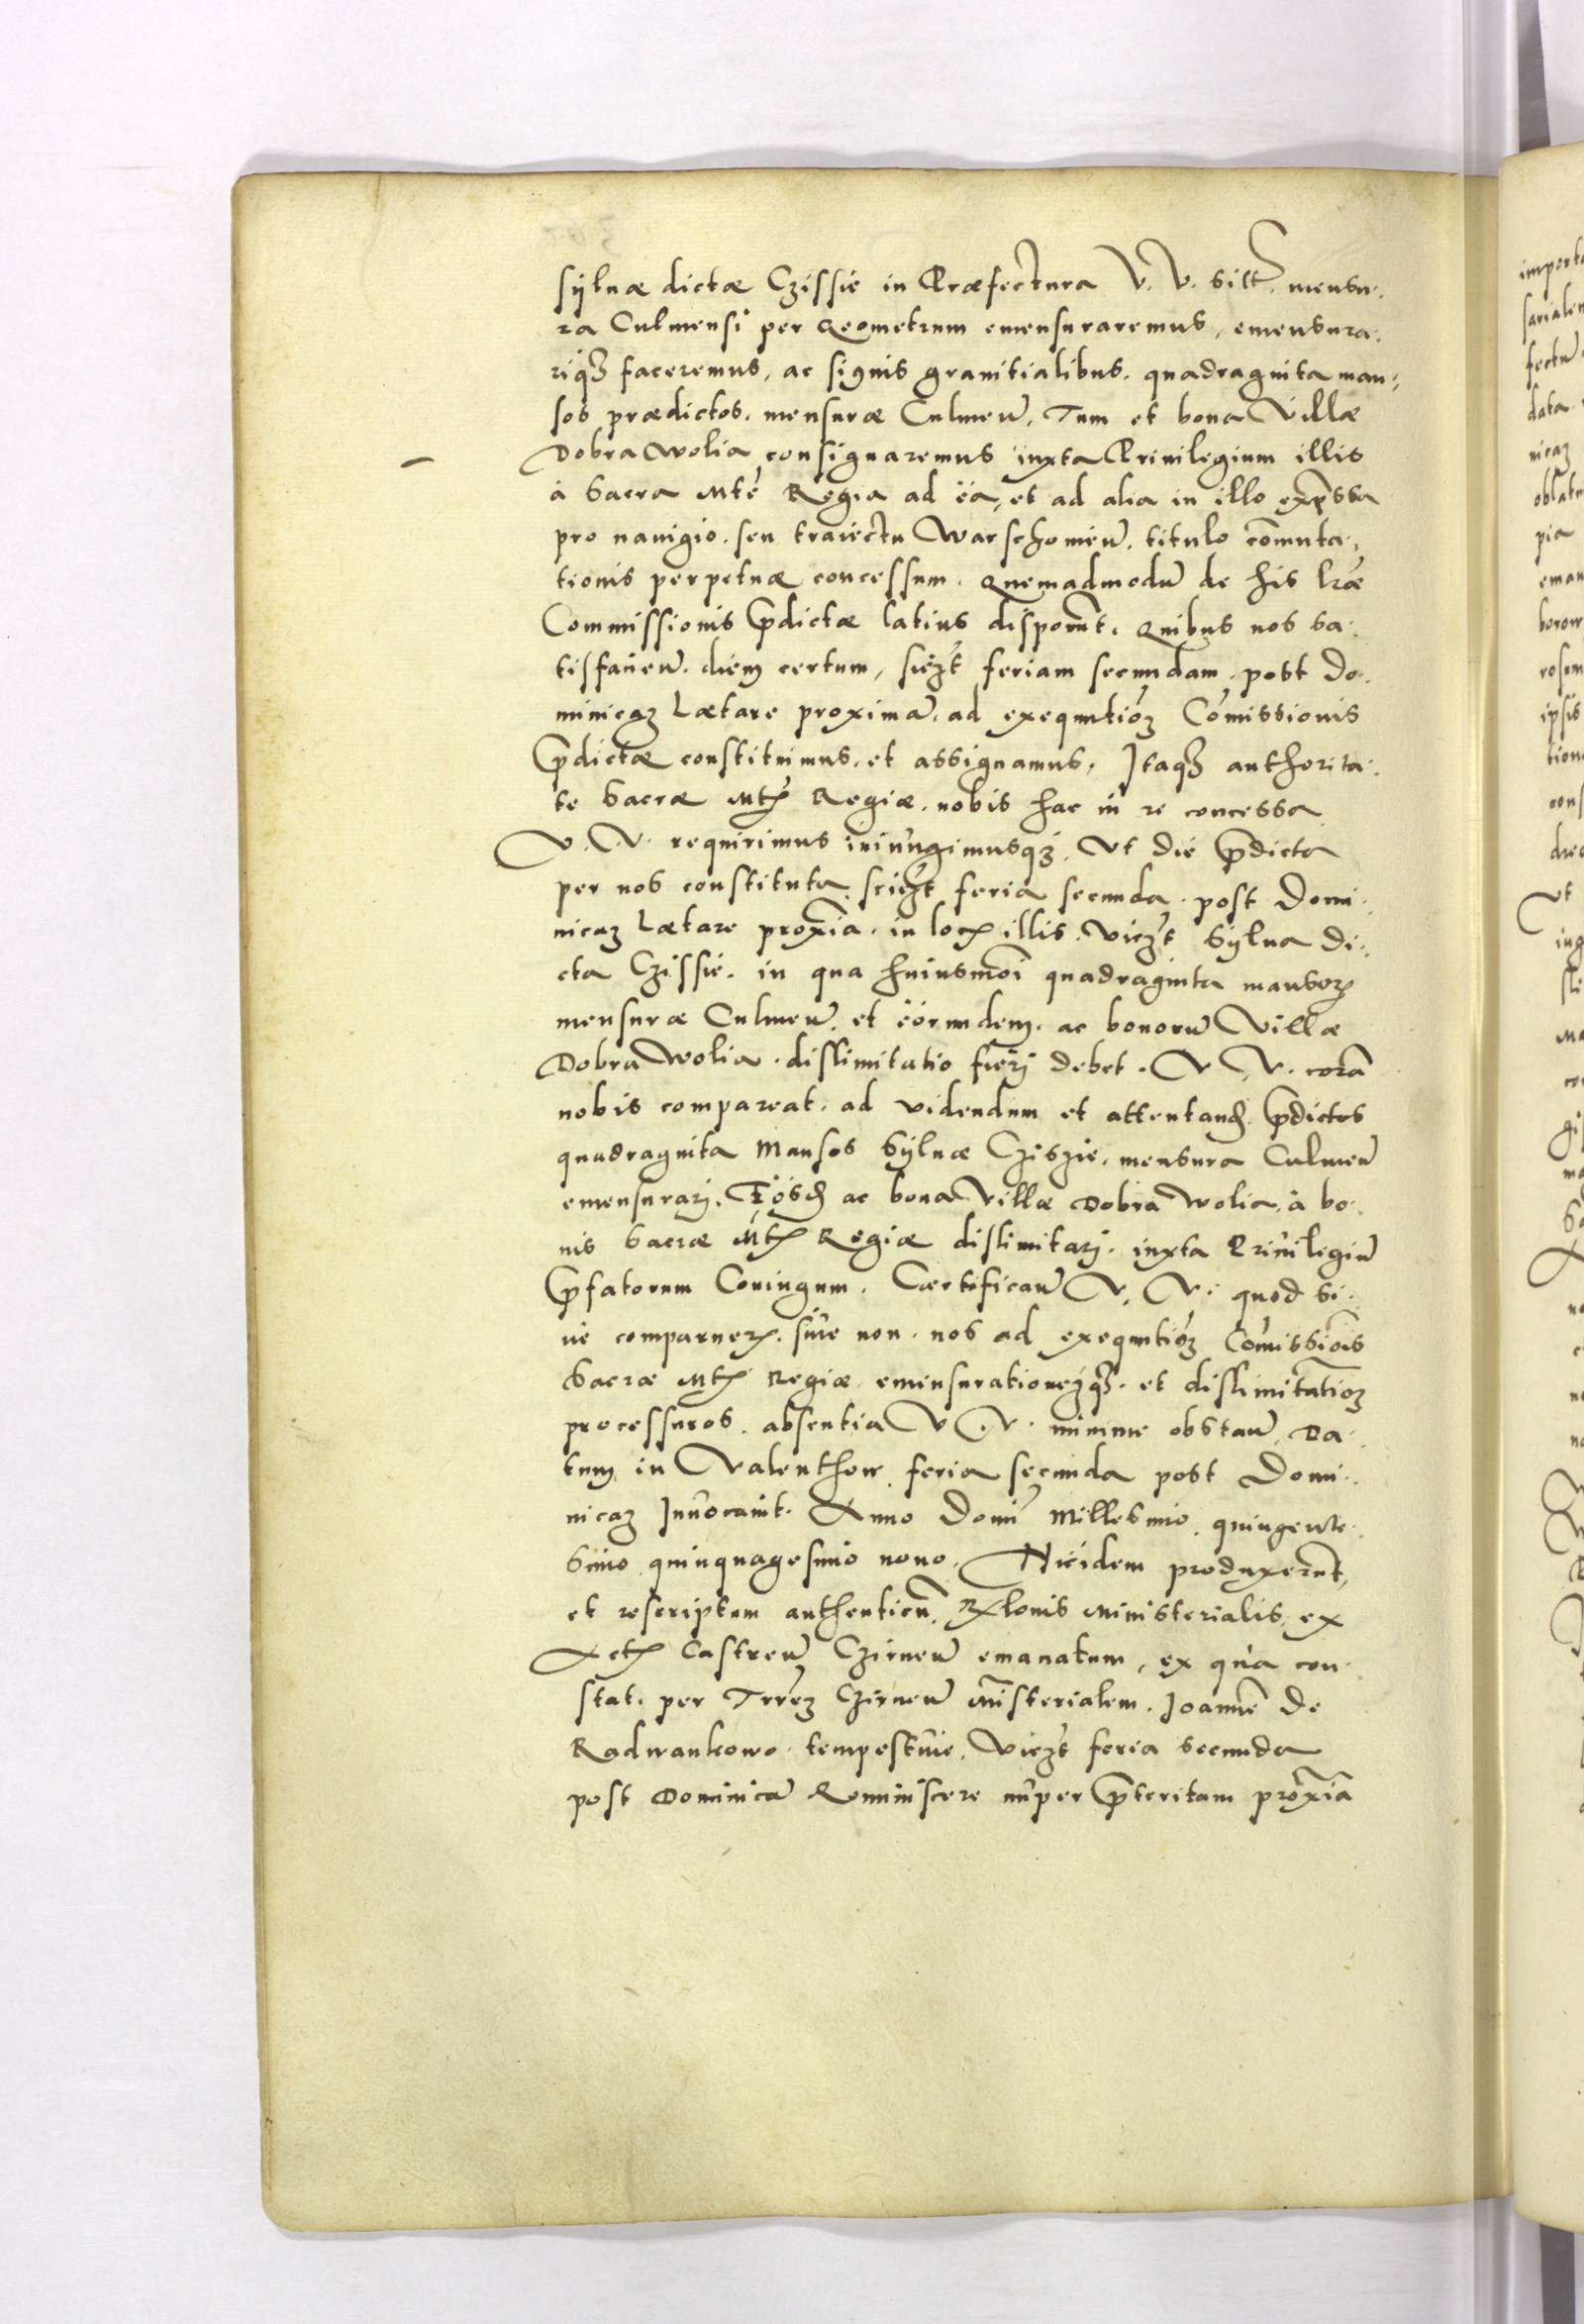 sylvæ dictæ Czissie in Præfectura V. V. sitt. mensu:
ra Culmensi per Geometrum emensuraremus, emensura:
riq3 faceremus, ac signis granitialibus, quadraginta man:
sos prædictos, mensuræ Culmeñ, Tum et bona Villæ
Dobrawolia consignaremus iuxta Privilegium illis
à Sacra Mte Regia ad ea, et ad alia in illo exp̃ssa
pro navigio, seu traiectu Warschovieñ, titulo cõmuta:
tionis perpetuæ concessum, Quemadmodũ de his lr̃æ
Commissionis p̃dictæ latius disponũt, Quibus nos sa:
tisfacieñ, diem certum, scilz̃t feriam secundam, post Do:
minicam Lætare proximã, ad exequutiõẽ Cõmissionis
p̃dictæ constituimus, et assignamus, Itaq3 authorita:
te Sacræ Mtis Regiæ, nobis hac in re concessa
V. V. requirimus iniungimusq3, Ut die p̃dicta
per nos constituta, scilz̃t feria secunda, post Domi:
nicam Lætare proxĩa, in locis illis, vidz̃t Sylva di:
cta Czissie, in qua huiusmõi quadraginta mansorum
mensuræ Culmeñ, et eorundem, ac bonorũ Villæ
Dobrawolia, dislimitatio fieri debet, V. V. corã
nobis compareat, ad videndum et attentand. p̃dictos
quadraginta Mansos Sylvæ Cziszie, mensura Culmeñ
emensurari, Eosd. ac bona Villæ Dobra Wolia, à bo:
nis Sacræ Mtis Regiæ dislimitari, iuxta Privilegiũ
p̃fatorum Coniugum, Certificañ V. V. quod si:
ve comparueris, sive non, nos ad exequutiõẽ Cõmissiõis
Sacræ Mtis Regiæ, emensurationemq3, et dislimitatiõẽ
processuros, absentia V. V. minime obstañ, Da:
tum in Valenthow feria secunda post Domi:
nicam Invocavit, Anno Domĩ Millesimo, quingente:
simo, quinquagesimo nono, Hiidem produxerũt,
et rescriptum authenticũ, Rlõnis Ministerialis, ex
Actis Castreñ Czirneñ emanatum, ex qua con:
stat, per Trr̃em Czirneñ Mĩsterialem, Joannẽ de
Radwankowo, tempestive, vidz̃t feria secunda
post Dominicã Reminiscere nuper p̃teritam proxĩã